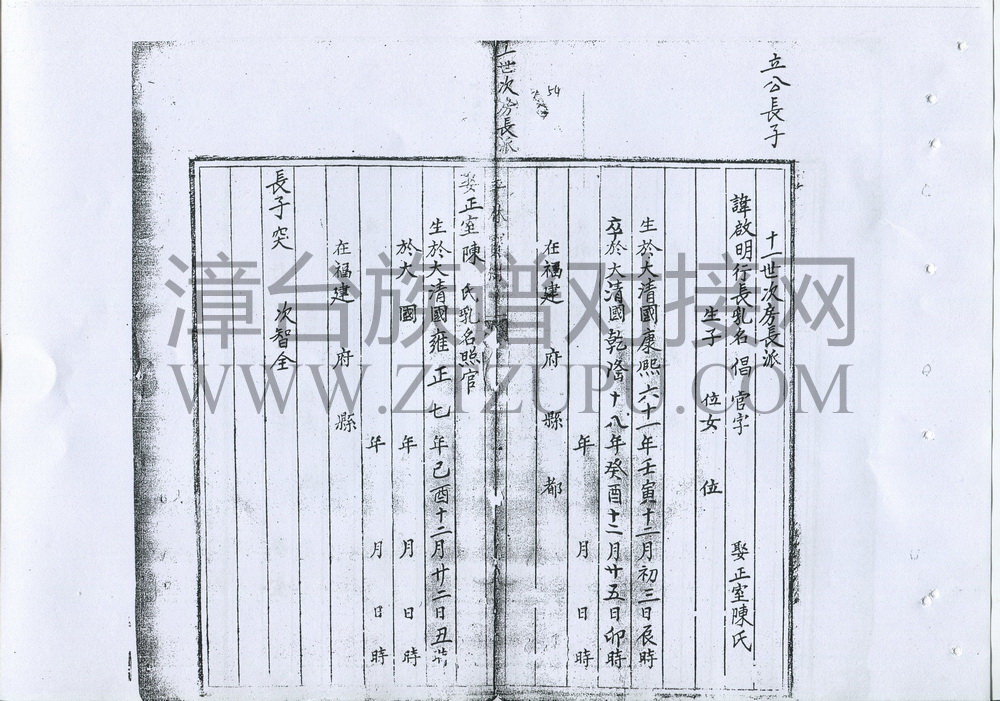 立公長子
十一世次房長派
諱啟明行長乳名倡官字 娶正室陳氏
生子 位女 位
生於大清國康熙六十一年壬寅十二月初三日辰時
卒於大清國乾隆十八年癸酉十二月廿五日卯時
年 月 日 時
在福建 府 縣 都
54
世次房長派
娶正室陳 氏乳名照官
生於大清國雍正七年己酉十二月廿二日丑時
於大 國 年 月 日 時
年 月 日 時
在福建 府 縣
長子突 次智全
漳台族谱对接网
WWW.ZTZUPU.COM